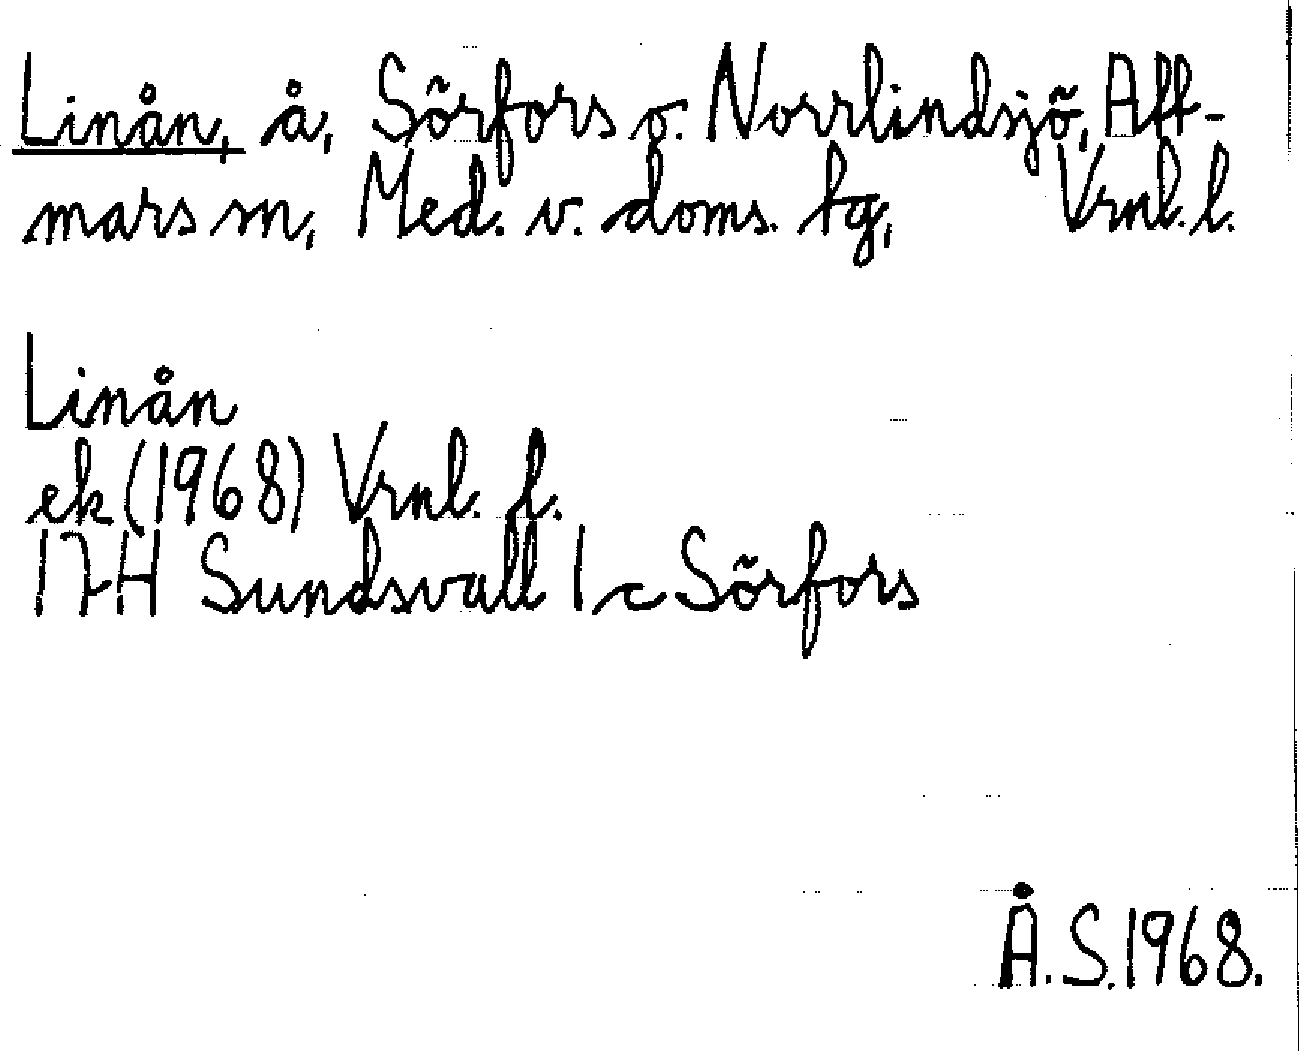 Linån, å, Sörfors o. Norrlindsjö, Att-
mars sn, Med. v. doms. tg, Vrnl. l.
Linån
ek (1968) Vrnl. l.
17H Sundsvall 1 c Sörfors
Å.S. 1968.